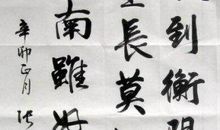 到衡
長莫
南雖
辛卯正月